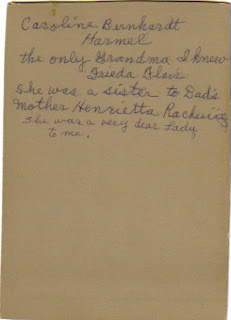 Caroline Burnhardt
Harmel
the only Grandma I knew
Frieda Glais
she was a sister to Dad's
Mother Henrietta
She was a very dear Lady
to me.